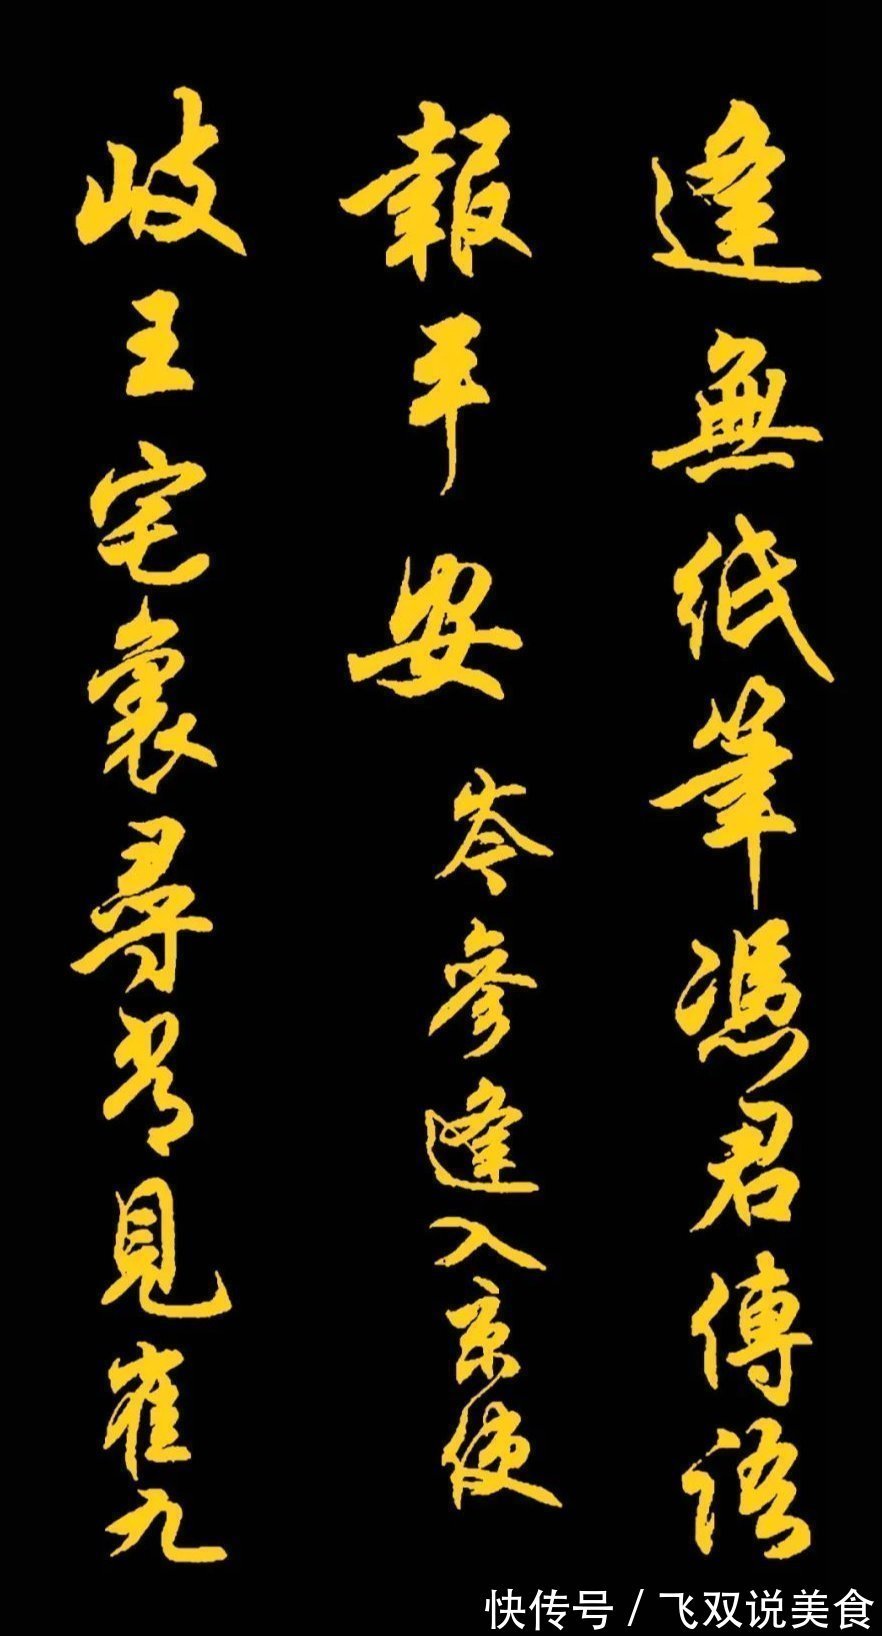 逢無紙筆憑君傳語
報平安 岑參逢入京使
岐王宅裏尋常見崔九
快传号/飞双说美食